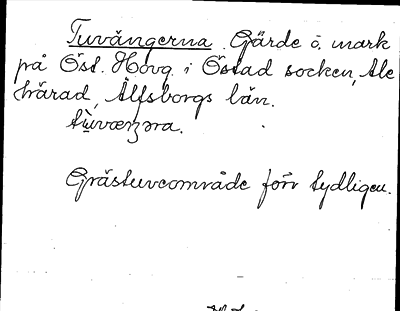 Tuvängerna. Gärde o. mark
på Öst. Hovg. i Östad socken, Ale
härad, Älfsborgs län.
Gråstuveområde förr tydligen.